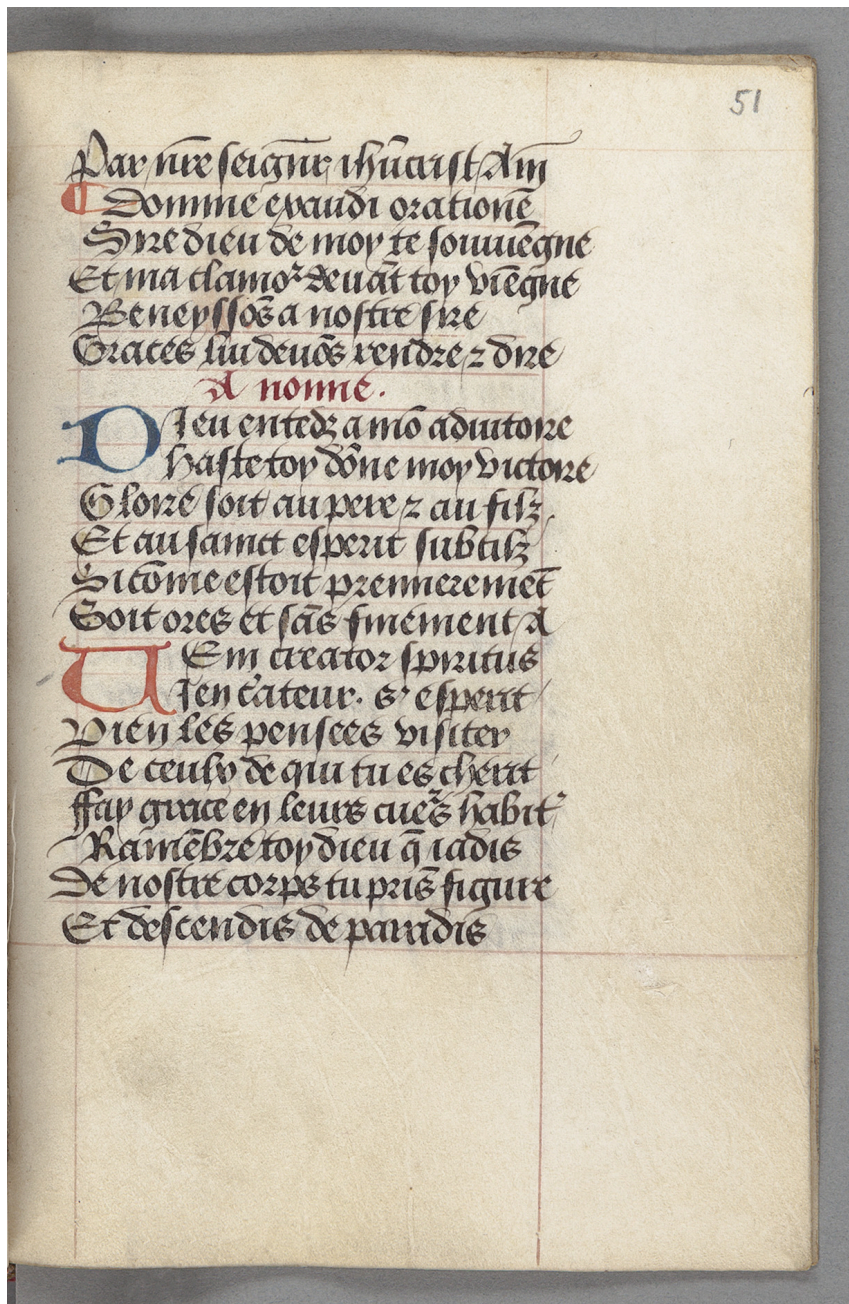 51
Par nr̄e seign̄r ih̄ucrist Am̄
¶ Domine exaudi orationē
Sire dieu de moy te souuiēgne
Et ma clamor deuāt toy viēgne
Beneyssōs a nostre sire
Graces luy deuōs rendre ⁊ dire
A nonne.
Dieu entēdz a mō adiutoire
Haste toy dōne moy victoire
Gloire soit au pere ⁊ au filz
Et au sainct esperit subtilz
Si cōme estoit premieremēt
Soit ores et sās finement A
VEni creator spiritus
Vien c̄ateur. s' esperit
Dien les pensees visiter
De ceulx de qui tu es cherit
ffay grace en leurs cuers habit'
Ramēbre toy dieu q̄ iadis
De nostre corps tu pris figure
Et descendis de paradis